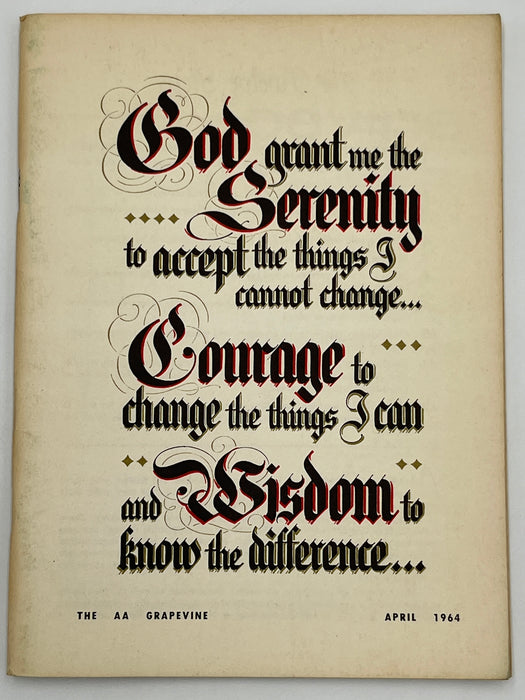 God grant me the
Serenity
to accept the things I
cannot change...
Courage to
change the things I can
and Wisdom to
know the difference...
THE AA GRAPEVINE APRIL 1964